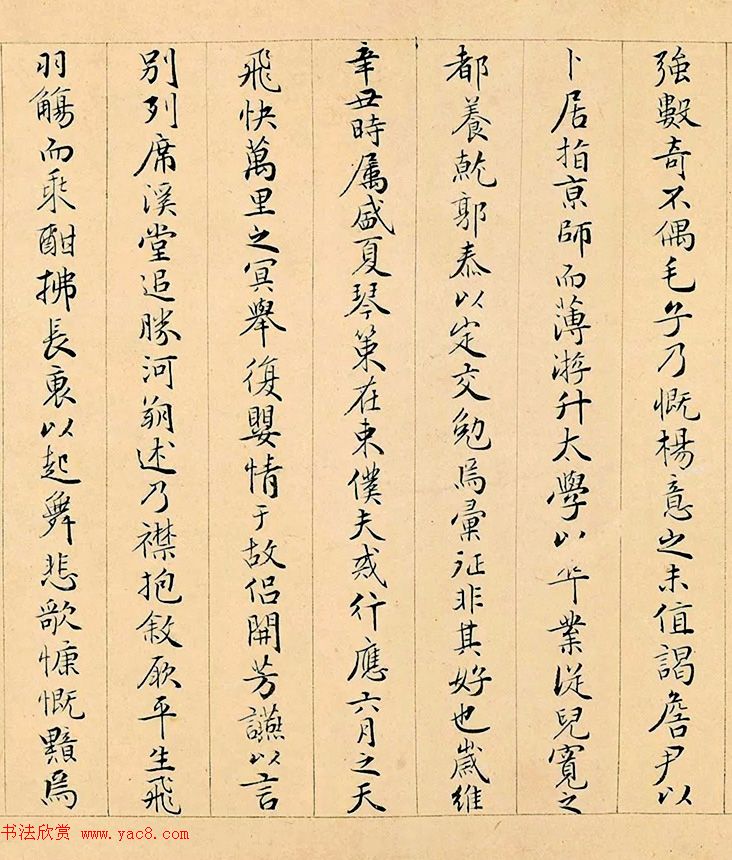 強數奇不偶毛子乃慨楊意之未值謁詹尹以
卜居指京師而薄游升太學以卒業從兒寬之
都養乾郭泰以定交勉焉彙征非其好也歲維
辛丑時属盛夏琴策在東僕夫戒行應六月之天
飛快萬里之冥舉復嬰情于故侣開芳讌以言
別列席溪堂追勝河朔述乃襟抱敘厥平生飛
羽觴而乘酣拂長裒以起舞悲歌慷慨黯焉
书法欣赏 www.yac8.com